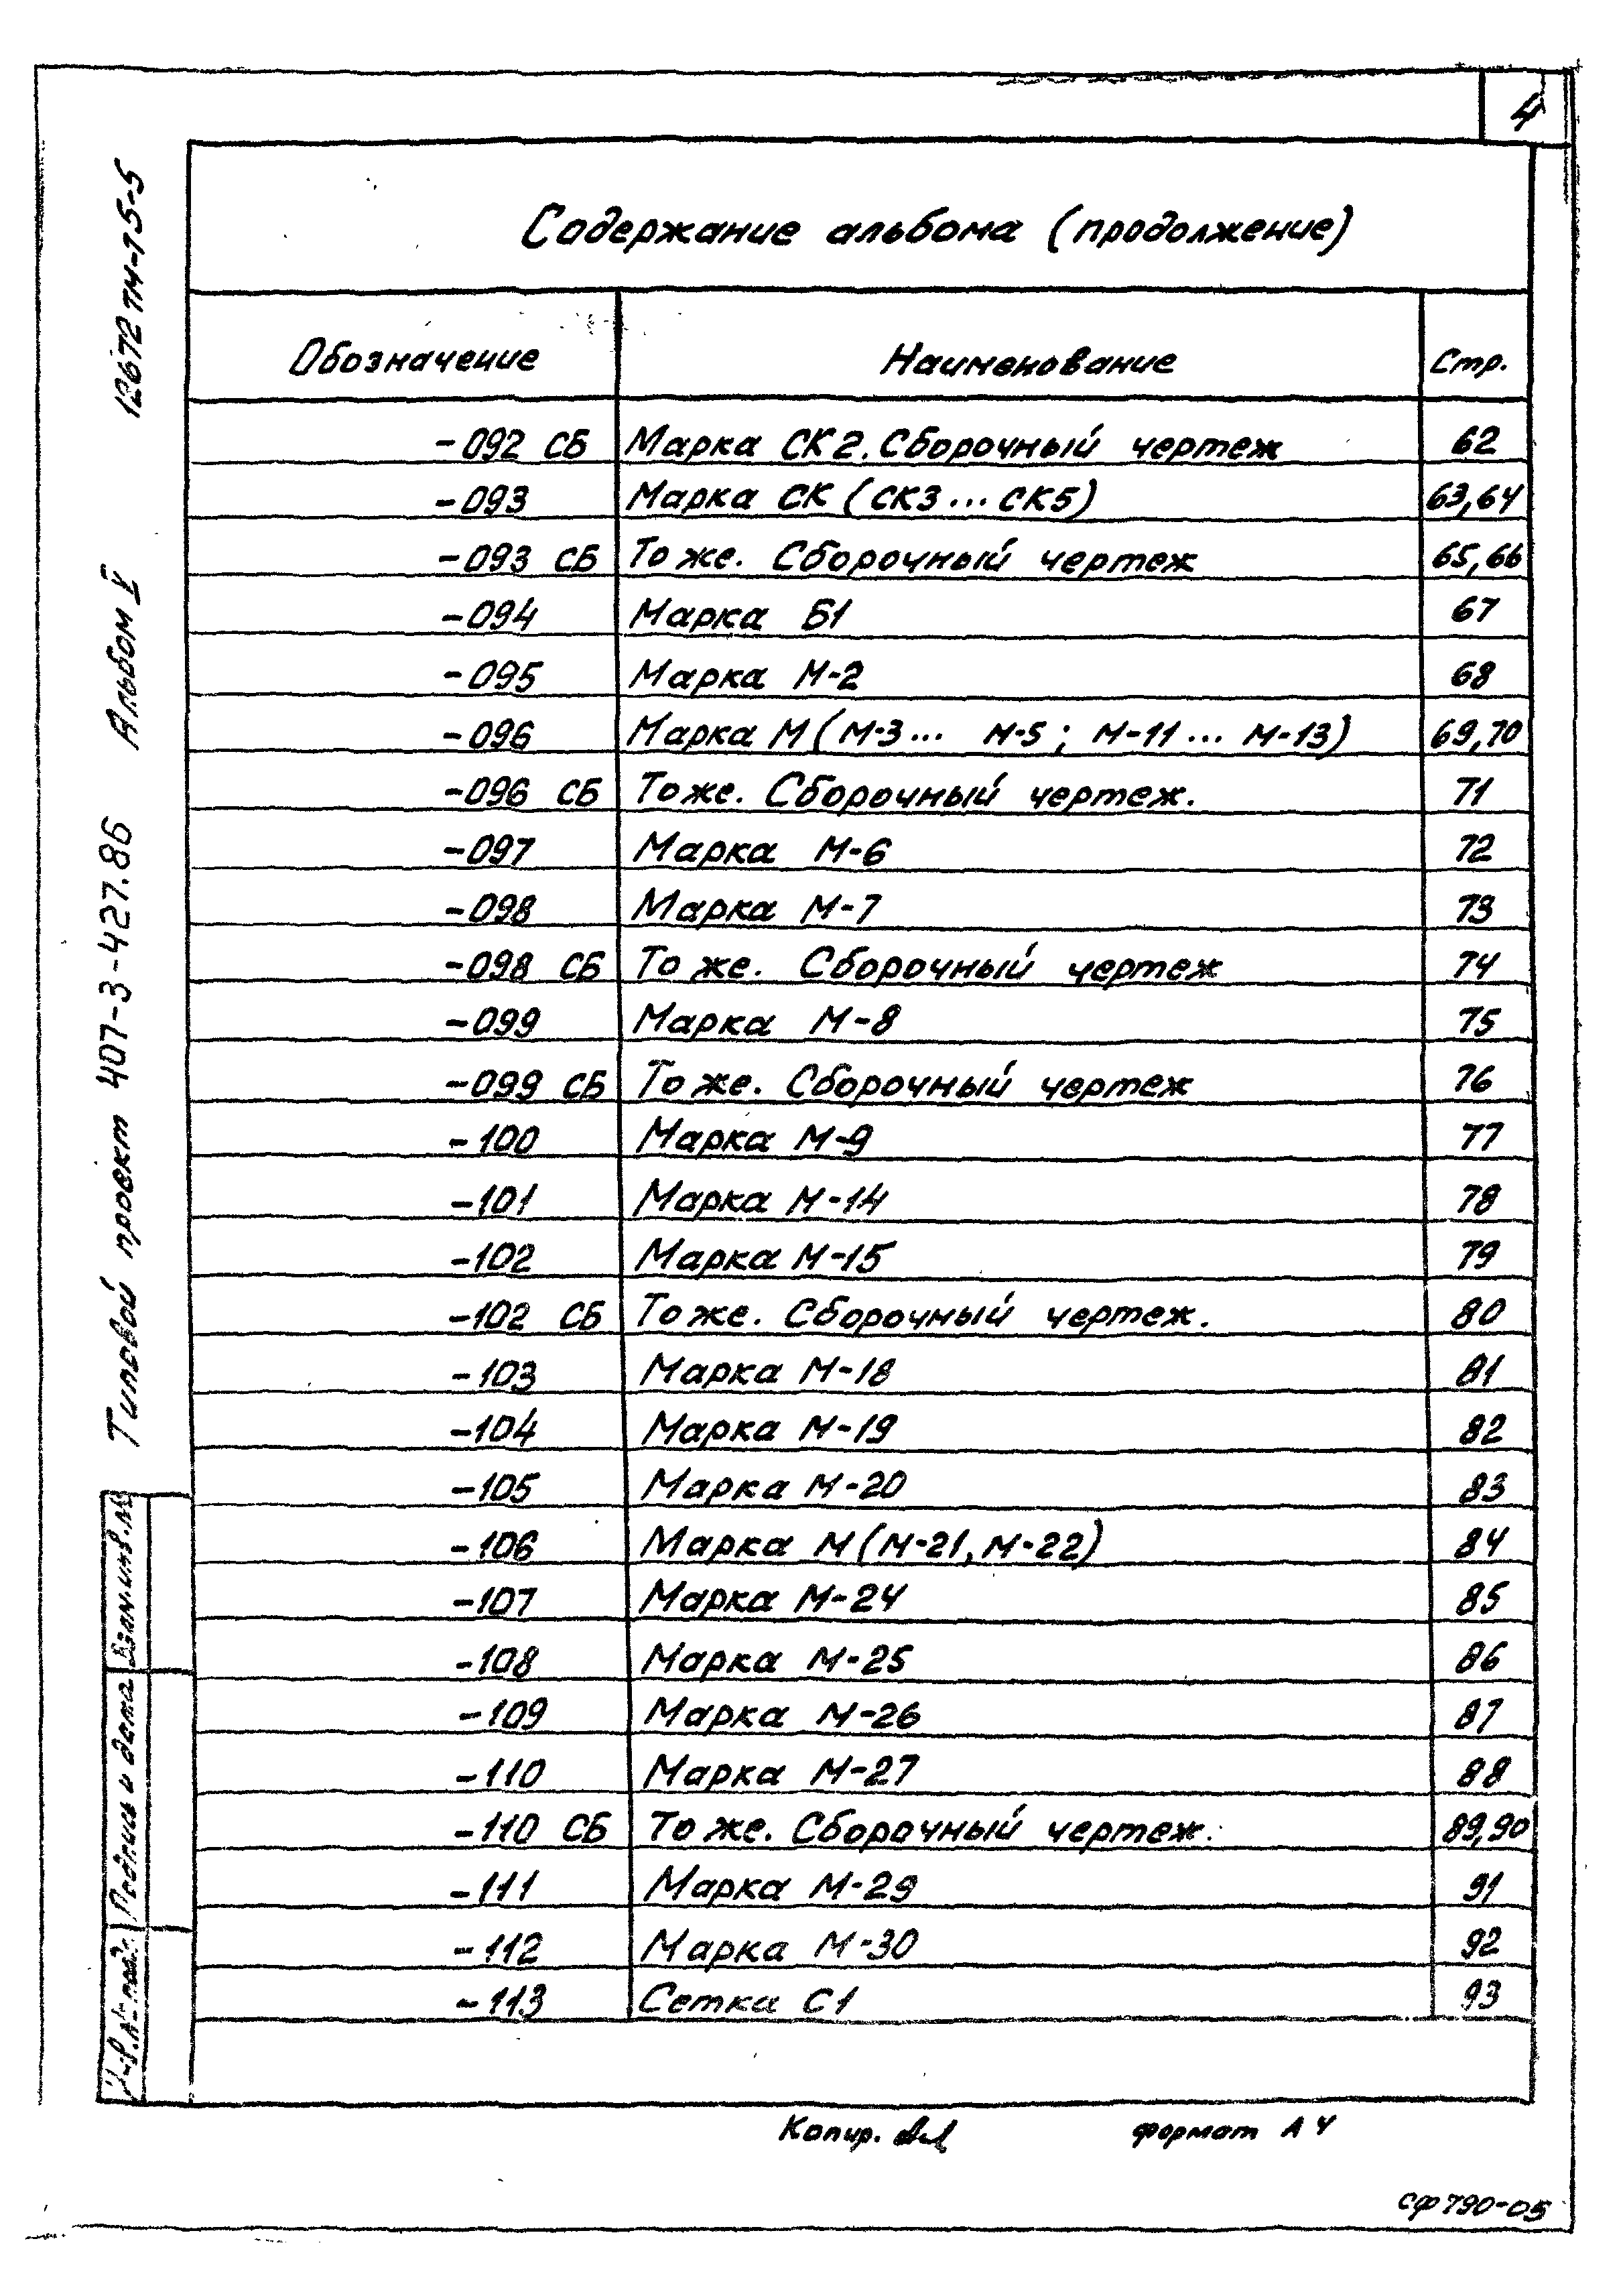 4
Содержание альбома (продолжение)
Обозначение Наименование Стр.
-092 СБ Марка СК2. Сборочный чертеж 62
-093 Марка СК (СК3 ... СК5) 63,64
-093 СБ То же. Сборочный чертеж 65,66
-094 Марка Б1 67
-095 Марка М-2 68
-096 Марка М (М-3 ... М-5; М-11 ... М-13) 69,70
-096 СБ То же. Сборочный чертеж. 71
-097 Марка М-6 72
-098 Марка М-7 73
-098 СБ То же. Сборочный чертеж 74
-099 Марка М-8 75
-099 СБ То же. Сборочный чертеж 76
-100 Марка М-9 77
-101 Марка М-14 78
-102 Марка М-15 79
-102 СБ То же. Сборочный чертеж. 80
-103 Марка М-18 81
-104 Марка М-19 82
-105 Марка М-20 83
-106 Марка М (М-21, М-22) 84
-107 Марка М-24 85
-108 Марка М-25 86
-109 Марка М-26 87
-110 Марка М-27 88
-110 СБ То же. Сборочный чертеж. 89,90
-111 Марка М-29 91
-112 Марка М-30 92
-113 Сетка С1 93
Типовой проект 407-3-427.86 Альбом V 12672тм-т5-5
Взам.инв.№
Подпись и дата
Инв.№ подл.
Копир. формат А4
сф790-05